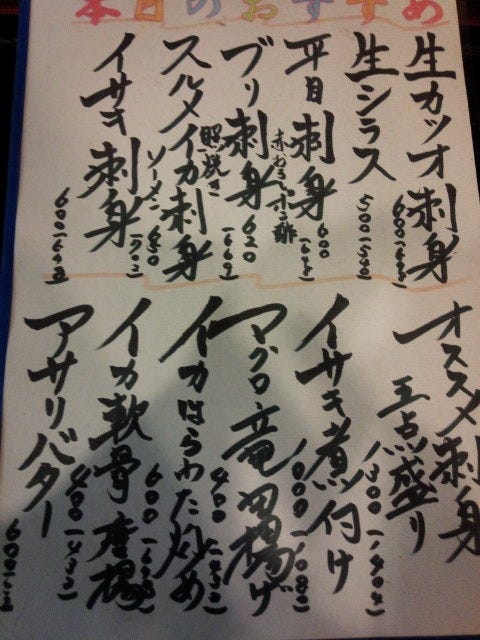 本日のおすすめ
生カツオ刺身
600(648)
生シラス
500(540)
平目刺身
600(648)
ブリ刺身
照焼き
620(669)
スルメイカ刺身
ソーメン
650(702)
イサキ刺身
オススメ刺身
五点盛り
1300(1404)
イサキ煮付け
マグロ竜田揚げ
イカはらわた炒め
400(432)
イカ軟骨唐揚
600(648)
アサリバター
400(432)